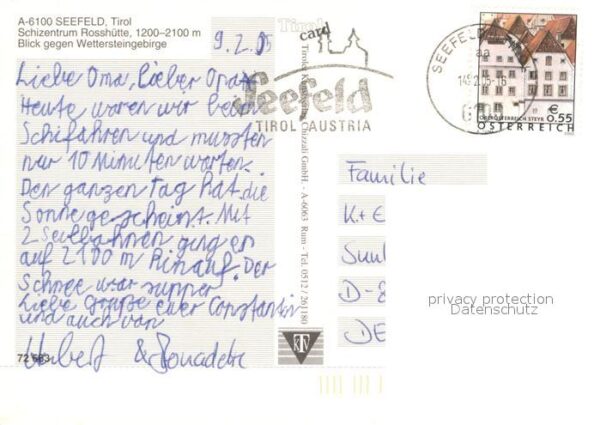 A-6100 SEEFELD, Tirol
Schizentrum Rosshütte, 1200–2100 m
Blick gegen Wettersteingebirge
9.2.05
Liebe Oma, lieber Opa
Heute waren wir beim
Schifahren und mussten
nur 10 Minuten warten.
Den ganzen Tag hat die
Sonne gescheint. Mit
2 Seilbahnen ging es
auf 2100 m hinauf. Der
Schnee war supper
Liebe Grüße euer Constantin
und auch von
Hubert &
72 683
Tirol
card
Seefeld
TIROL AUSTRIA
Tiroler Chizzali GmbH. - A-6063 Rum - Tel. 0512 / 261180
KTV
SEEFELD
14.2.05-16
€ 0,55
OBERÖSTERREICH STEYR
ÖSTERREICH
Familie
K+E
D-8
DE
privacy protection
Datenschutz